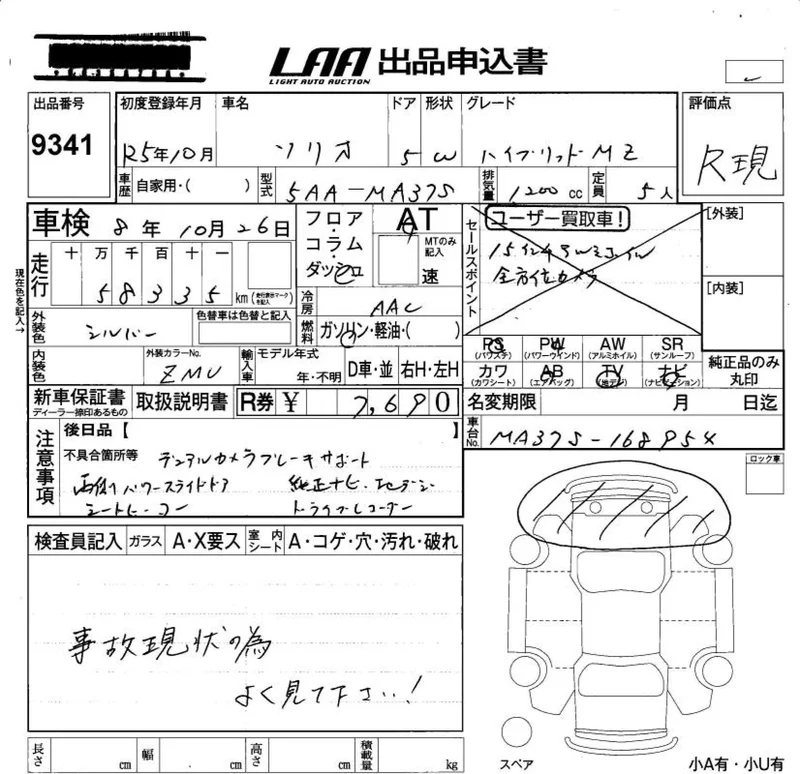 LAA 出品申込書
LIGHT AUTO AUCTION
出品番号 9341
初度登録年月 R5年10月
車名 ソリオ
ドア 5
形状 W
グレード ハイブリッドMZ
評価点 R現
車歴 自家用・( )
型式 5AA-MA37S
排気量 1200 cc
定員 5人
車検 8年10月26日
フロア・コラム・ダッシュ
AT
MTのみ記入
速
セールスポイント
ユーザー買取車!
15インチアルミホイル
全方位カメラ
[外装]
[内装]
現在色を記入→
走行 十万千百十一
58335 km (走行表示マークを記入)
冷房 AAC
燃料 ガソリン・軽油・( )
外装色 シルバー
色替車は色替と記入
内装色
外装カラーNo. ZMU
輸入車 モデル年式 年・不明
D車・並 右H・左H
PS (パワステ) PW (パワーウインド) AW (アルミホイル) SR (サンルーフ)
カワ (カワシート) AB (エアバッグ) TV (地デジ) ナビ (ナビゲーション)
純正品のみ丸印
新車保証書 ディーラー捺印あるもの
取扱説明書
R券 ¥ 7,690
名変期限 月 日迄
車台No. MA37S-168954
注意事項
後日品【 】
不具合箇所等 デュアルカメラブレーキサポート
両側パワースライドドア 純正ナビ
シートヒーター ドライブレコーダー
ロック車
検査員記入 ガラス A・X要ス 室内シート A・コゲ・穴・汚れ・破れ
事故現状の為
よく見て下さい!
長さ cm 幅 cm 高さ cm 積載量 kg
スペア
小A有・小U有